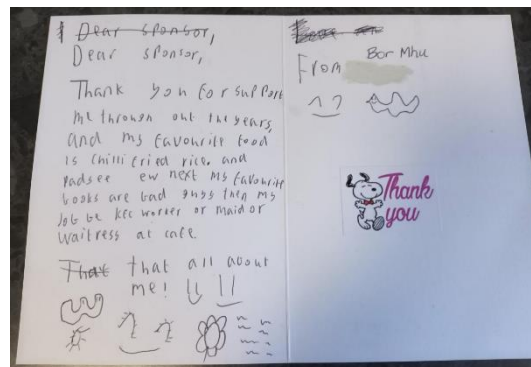 Dear sponsor,
Dear sponsor,
Thank you for support
me through out the years,
and my favourite food
is chilli fried rice. and
Padsee ew next my favourite
books are bad guys then my
Job be kfc worker or maid or
waitress at cafe
That that all about
me!
Bor Mhu
From
Thank
you